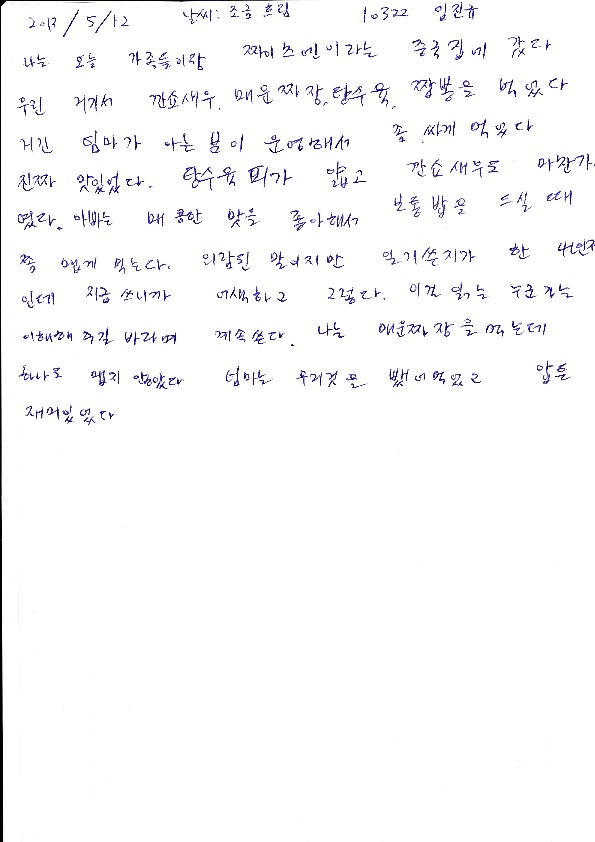 2013/5/12 날씨: 조금 흐림 10322 임진규
나는 오늘 가족들이랑 짜이즈멘이라는 중국집에 갔다
우린 거기서 깐쇼새우, 매운짜장, 탕수육, 짬뽕을 먹었다
거긴 엄마가 아는 분이 운영해서 좀 싸게 먹었다
진짜 맛있었다. 탕수육 피가 얇고 깐쇼새우도 마찬가
였다. 아빠는 매콤한 맛을 좋아해서 보통 밥을 드실 때
쫌 맵게 먹는다. 의람된 말이지만 일기쓴지가 한 4년만
인데 지금 쓰니까 어색하고 그렇다. 이걸 읽는 누군가는
이해해 주길 바라며 계속 쓴다. 나는 매운짜장을 먹는데
하나도 맵지 않았다 엄마는 우리것을 뺏어먹었고 암튼
재미있었다